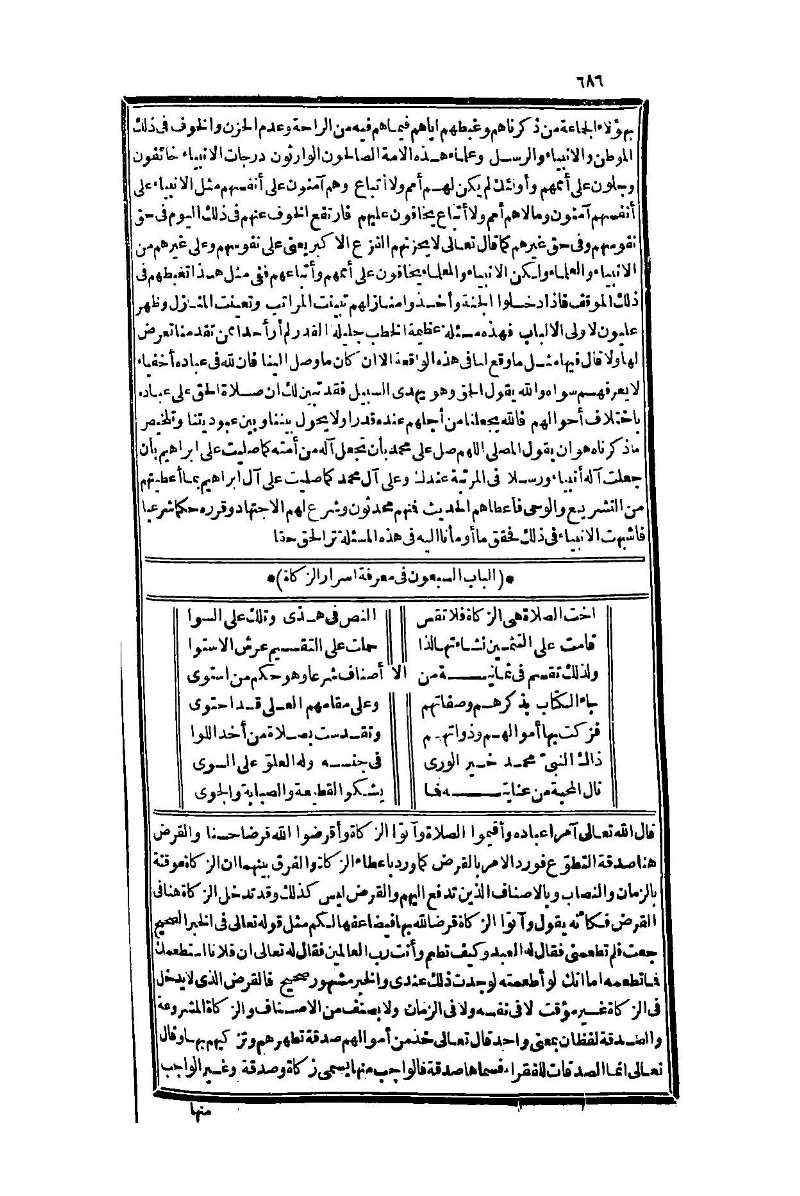 ٦٨٦
بهؤلاء الجماعة من ذكرناهم وغبطهم اياهم فيماهم فيه من الراحة وعدم الحزن والخوف فى ذلك
الموطن والانبياء والرسل وعلماء هذه الامة الصالحون الوارثون درجات الانبياء خائفون
وجلون على أممهم وأولئك لم يكن لهم أمم ولا أتباع وهم آمنون على أنفسهم مثل الانبياء على
أنفسهم آمنون ومالاهم أمم ولا أتباع يخافون عليهم فارتفع الخوف عنهم فى ذلك اليوم فى حق
نفوسهم وفى حق غيرهم كما قال تعالى لا يحزنهم الفزع الاكبر يعنى على نفوسهم وعلى غيرهم من
الانبياء والعلماء ولكن الانبياء والعلماء يخافون على أممهم وأتباعهم ففى مثل هذا تغبطهم فى
ذلك الموقف فاذا دخلوا الجنة وأخذوا منازلهم تبينت المراتب وتعينت المنازل وظهر
عليون لاولى الالباب فهذه مسئلة عظيمة الخطب جليلة القدر لم أر أحدا ممن تقدمنا تعرض
لها ولا قال فيها مثل ما وقع لنا فى هذه الواقعة الا ان كان ما وصل الينا فان لله فى عباده أخفياء
لا يعرفهم سواه والله يقول الحق وهو يهدى السبيل فقد تبين لك ان صلاة الحق على عباده
باختلاف أحوالهم فالله يجعلنا من أجلهم عنده قدرا ولا يحول بيننا وبين عبوديتنا وتلخيص
ما ذكرناه هو ان يقول المصلى اللهم صل على محمد بأن تجعل آله من أمته كما صليت على ابراهيم بأن
جعلت آله أنبياء ورسلا فى المرتبة عندك وعلى آل محمد كما صليت على آل ابراهيم بما أعطيتهم
من التشريع والوحى فأعطاهم الحديث فنهم محدثون وشرع لهم الاجتهاد وقرره حكما شرعيا
فاشبهت الانبياء فى ذلك فحقق ما أومأنا اليه فى هذه المسئلة تر الحق حقا
*(الباب السبعون فى معرفة اسرار الزكاة)*
اخت الصلاة هى الزكاة فلا تقس النص فى هذى وتلك على السوا
قامت على التثمين نشاءتها لذا حملت على التقسيم عرش الاستوا
ولذلك تقسم فى ثمانية من الا أصناف شرعا وهو حكم من استوى
جاء الكتاب بذكرهم وصفاتهم وعلى مقامهم العلى قد احتوى
فزكت بها أموالهم وذواتهم وتقدست بصلاة من أخذ اللوا
ذاك النبى محمد خير الورى فى جنسه وله العلو على السوى
قال المحبة من عناية فما يشكو القطيعة والصبابة والجوى
قال الله تعالى آمرا عباده وأقيموا الصلاة وآتوا الزكاة وأقرضوا الله قرضا حسنا والقرض
هنا صدقة التطوع فورد الامر بالقرض كما ورد باعطاء الزكاة والفرق بينهما ان الزكاة موقتة
بالزمان والنصاب وبالاصناف الذين تدفع اليهم والقرض ليس كذلك وقد تدخل الزكاة هنا فى
القرض فكأنه يقول وآتوا الزكاة قرضا لله بها فيضاعفها لكم مثل قوله تعالى فى الخبر الصحيح
جعت فلم تطعمنى فقال له العبد وكيف تطعم وأنت رب العالمين فقال له تعالى ان فلانا استطعمك
فما تطعمه اما انك لو أطعمته لوجدت ذلك عندى والخبر مشهور صحيح فالقرض الذى لا يدخل
فى الزكاة غير موقت لا فى نفسه ولا فى الزمان ولا بصنف من الاصناف والزكاة المشروعة
والصدقة لفظان بمعنى واحد قال تعالى خذ من أموالهم صدقة تطهرهم وتزكيهم بها وقال
تعالى انما الصدقات للفقراء فسماها صدقة فالواجب منها يسمى زكاة وصدقة وغير الواجب
منها